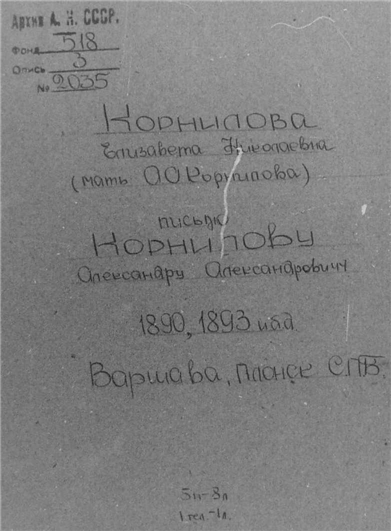 Архив А. Н. СССР.
Фонд 518
Опись 3
№ 2035
Корнилова
Елизавета Николаевна
(мать АА Корнилова)
письма
Корнилову
Александру Александровичу
1890, 1893 и б д
Варшава, Плонск СПБ.
5п-8л
1 тел-1л.